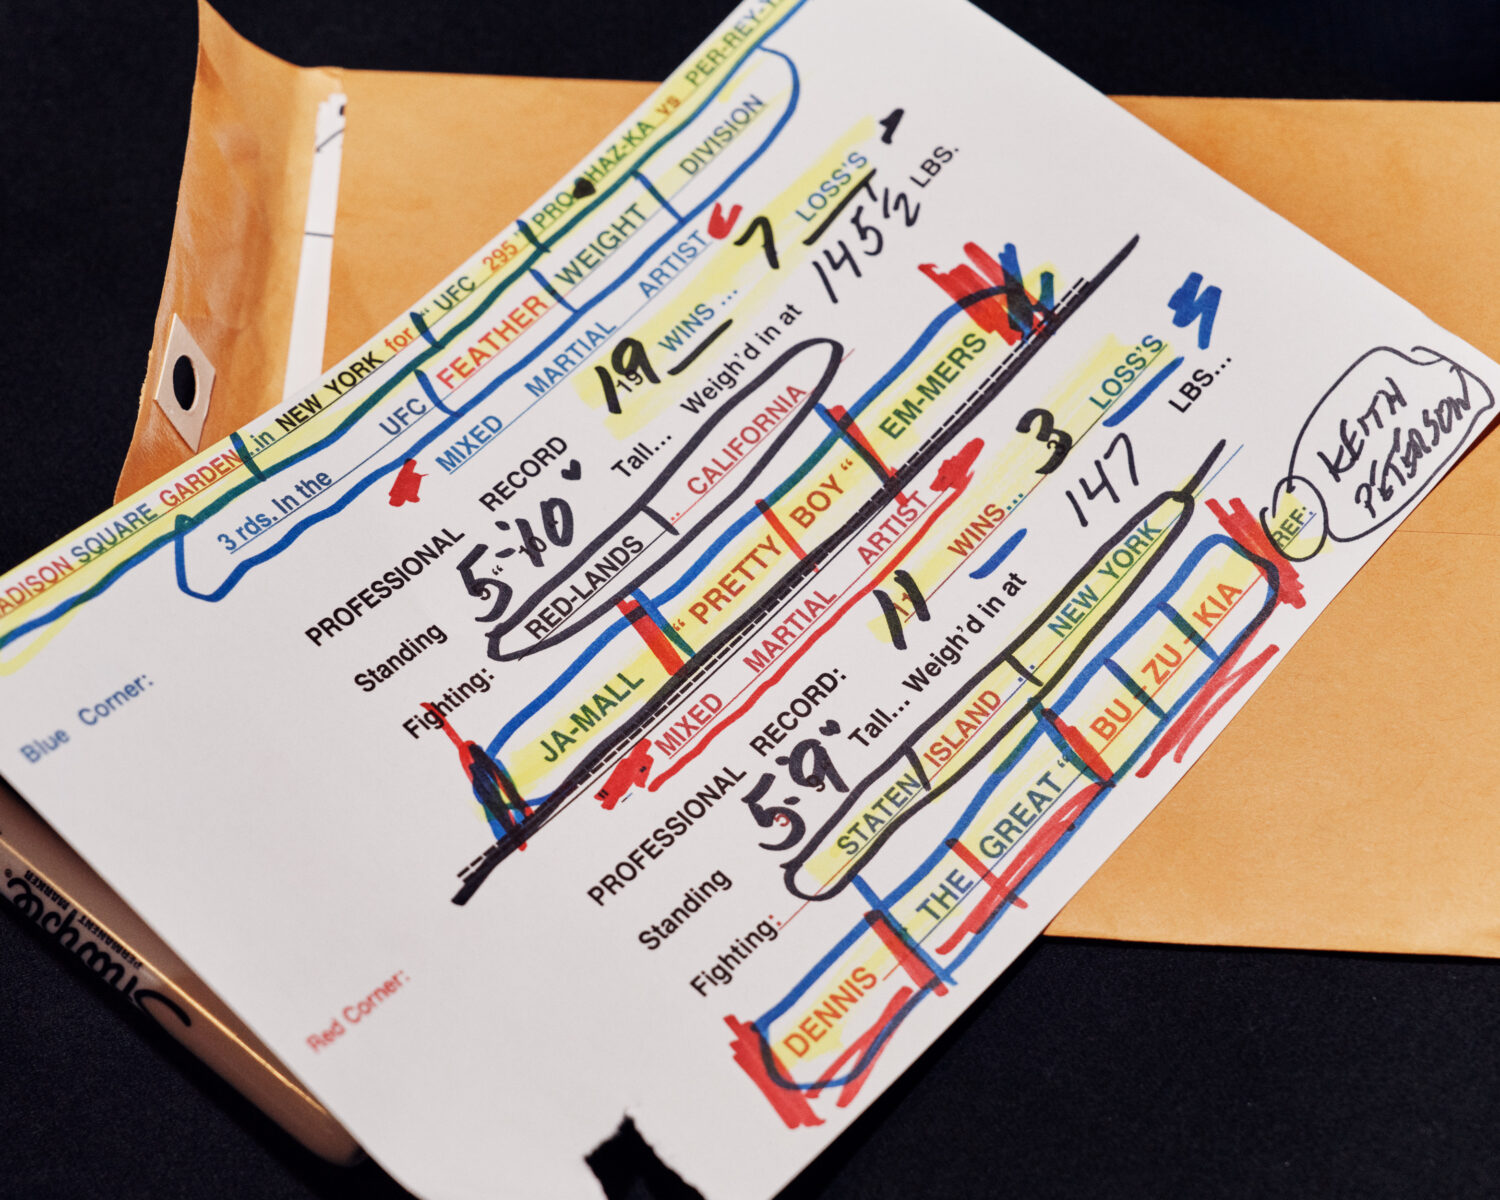 ADISON SQUARE GARDEN...in NEW YORK for " UFC 295 " PRO-HAZ-KA vs PER-REY-
3 rds. In the UFC FEATHER WEIGHT DIVISION
Blue Corner:
MIXED MARTIAL ARTIST
PROFESSIONAL RECORD 19 WINS ... 7 LOSS'S
Standing 5'10" Tall... Weigh'd in at 145 1/2 LBS.
Fighting: RED-LANDS .. CALIFORNIA
JA-MALL " PRETTY BOY " EM-MERS
Red Corner:
MIXED MARTIAL ARTIST
PROFESSIONAL RECORD: 11 WINS... 3 LOSS'S
Standing 5'9" Tall... Weigh'd in at 147 LBS...
Fighting: STATEN ISLAND .. NEW YORK
DENNIS THE GREAT " BU ZU - KIA
REF: KEITH PETERSON
Sharpie®
PERMANENT MARKER